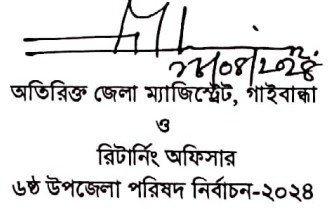 অতিরিক্ত জেলা ম্যাজিস্ট্রেট, গাইবান্ধা
ও
রিটার্নিং অফিসার
৬ষ্ঠ উপজেলা পরিষদ নির্বাচন-২০২৪